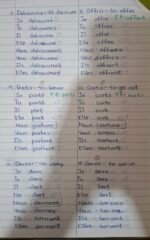 Découvrir - to discover
Je découvre
Tu découvres
Il découvre
Elle découvre
Nous découvrons
Vous découvrez
Ils découvrent
Elles découvrent
Offrir - to offer
J' offre
Tu offres
Il offre
Elle offre
Nous offrons
Vous offrez
Ils offrent
Elles offrent
Partir - to leave
Je pars
Tu pars
Il part
Elle part
Nous partons
Vous partez
Ils partent
Elles partent
Sortir - to go out
Je sors
Tu sors
Il sort
Elle sort
Nous sortons
Vous sortez
Ils sortent
Elles sortent
Dormir - to sleep
Je dors
Tu dors
Il dort
Elle dort
Nous dormons
Vous dormez
Ils dorment
Elles dorment
Servir - to serve
Je sers
Tu sers
Il sert
Elle sert
Nous servons
Vous servez
Ils servent
Elles servent